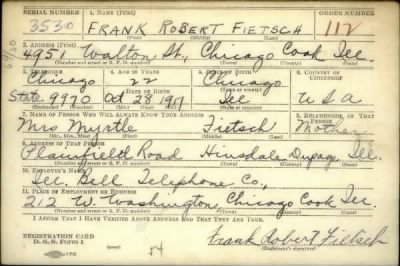 SERIAL NUMBER 1. NAME (Print) ORDER NUMBER
3530 FRANK ROBERT FIETSCH 112
2. ADDRESS (Print)
4951 Walton St., Chicago Cook Ill.
(Number and street or R. F. D. number) (Town) (County) (State)
3. TELEPHONE 4. AGE IN YEARS 5. PLACE OF BIRTH 6. COUNTRY OF CITIZENSHIP
Chicago 22 Chicago
DATE OF BIRTH
State 9990 Oct 28 Ill U S A
7. NAME OF PERSON WHO WILL ALWAYS KNOW YOUR ADDRESS 8. RELATIONSHIP OF THAT PERSON
Mrs Myrtle Fietsch Mother
9. ADDRESS OF THAT PERSON
Plainfield Road Hinsdale Dupage Ill.
(Number and street or R. F. D. number) (Town) (County) (State)
10. EMPLOYER'S NAME
Ill. Bell Telephone Co.,
11. PLACE OF EMPLOYMENT OR BUSINESS
212 W. Washington, Chicago Cook Ill.
(Number and street or R. F. D. number) (Town) (County) (State)
I AFFIRM THAT I HAVE VERIFIED ABOVE ANSWERS AND THAT THEY ARE TRUE.
REGISTRATION CARD
D. S. S. Form 1 Frank Robert Fietsch
(Registrant's signature)